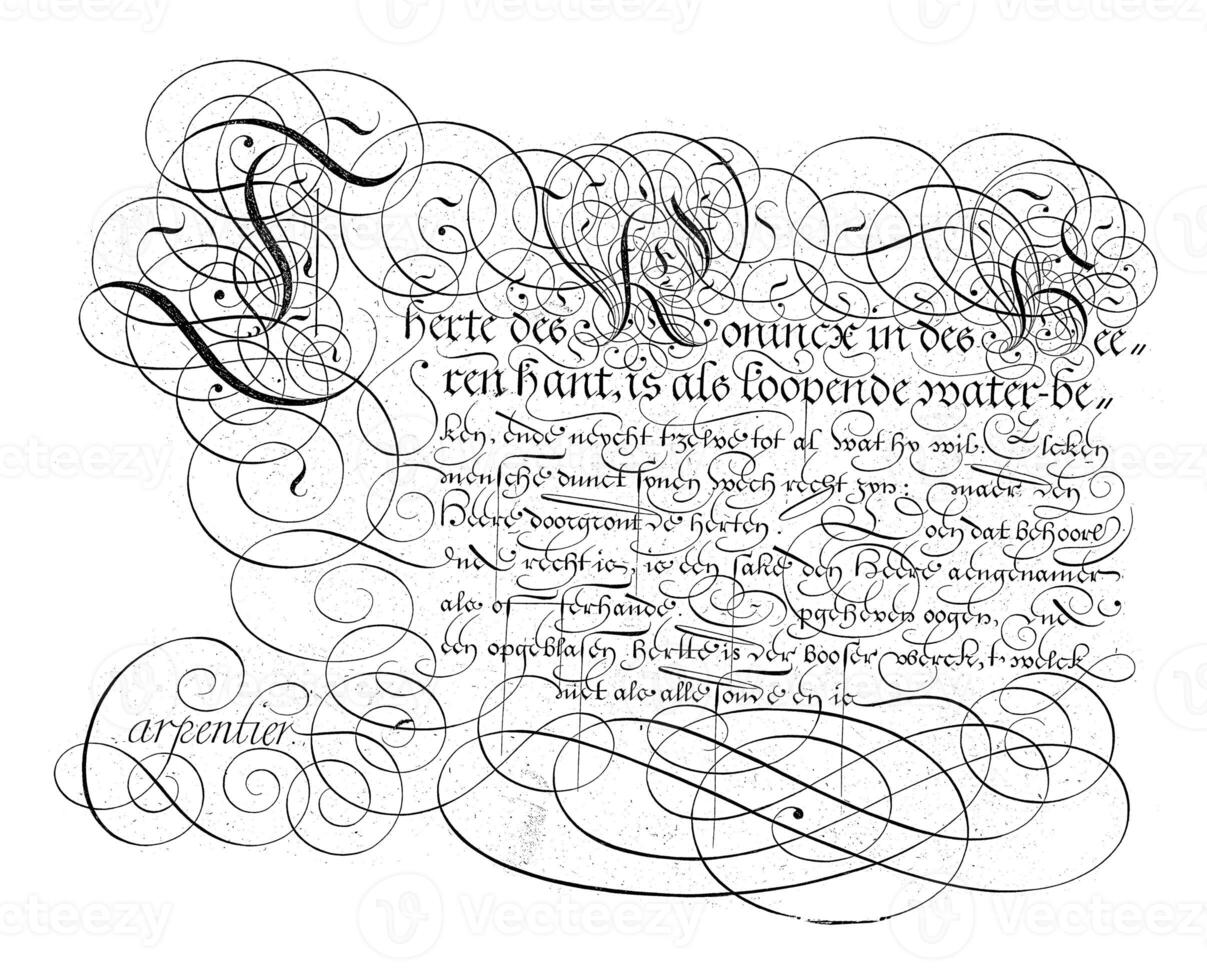 T
herte des Konincx in des Hee„
ren hant, is als loopende water-be„
ken, ende neycht tzelve tot al wat hy wil. Elcken
mensche dunct synen wech recht zyn: maer den
Heere doorgront de herten. Doen dat behoorl
ende recht is, is een sake den Heere aengenamer
als offerhande. Opgeheven oogen, ende
een opgeblasen hertte is der booser werck, t welck
niet als alle sonde en is
Carpentier.
Vecteezy